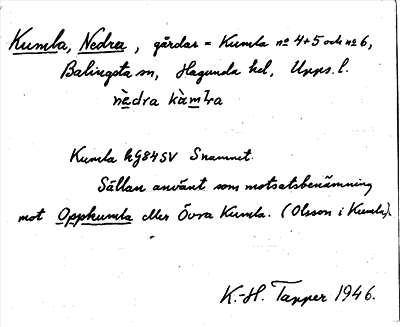 Kumla, Nedra, gårdar = Kumla nº 4+5 och nº 6,
Balingsta sn, Hagunda hd, Upps. l.
nèdra kàmɫra
Kumla hg84SV Snamnet.
Sällan använt som motsatsbenämning
mot Oppkumla eller Övra Kumla. (Olsson i Kumla).
K.-H. Tapper 1946.